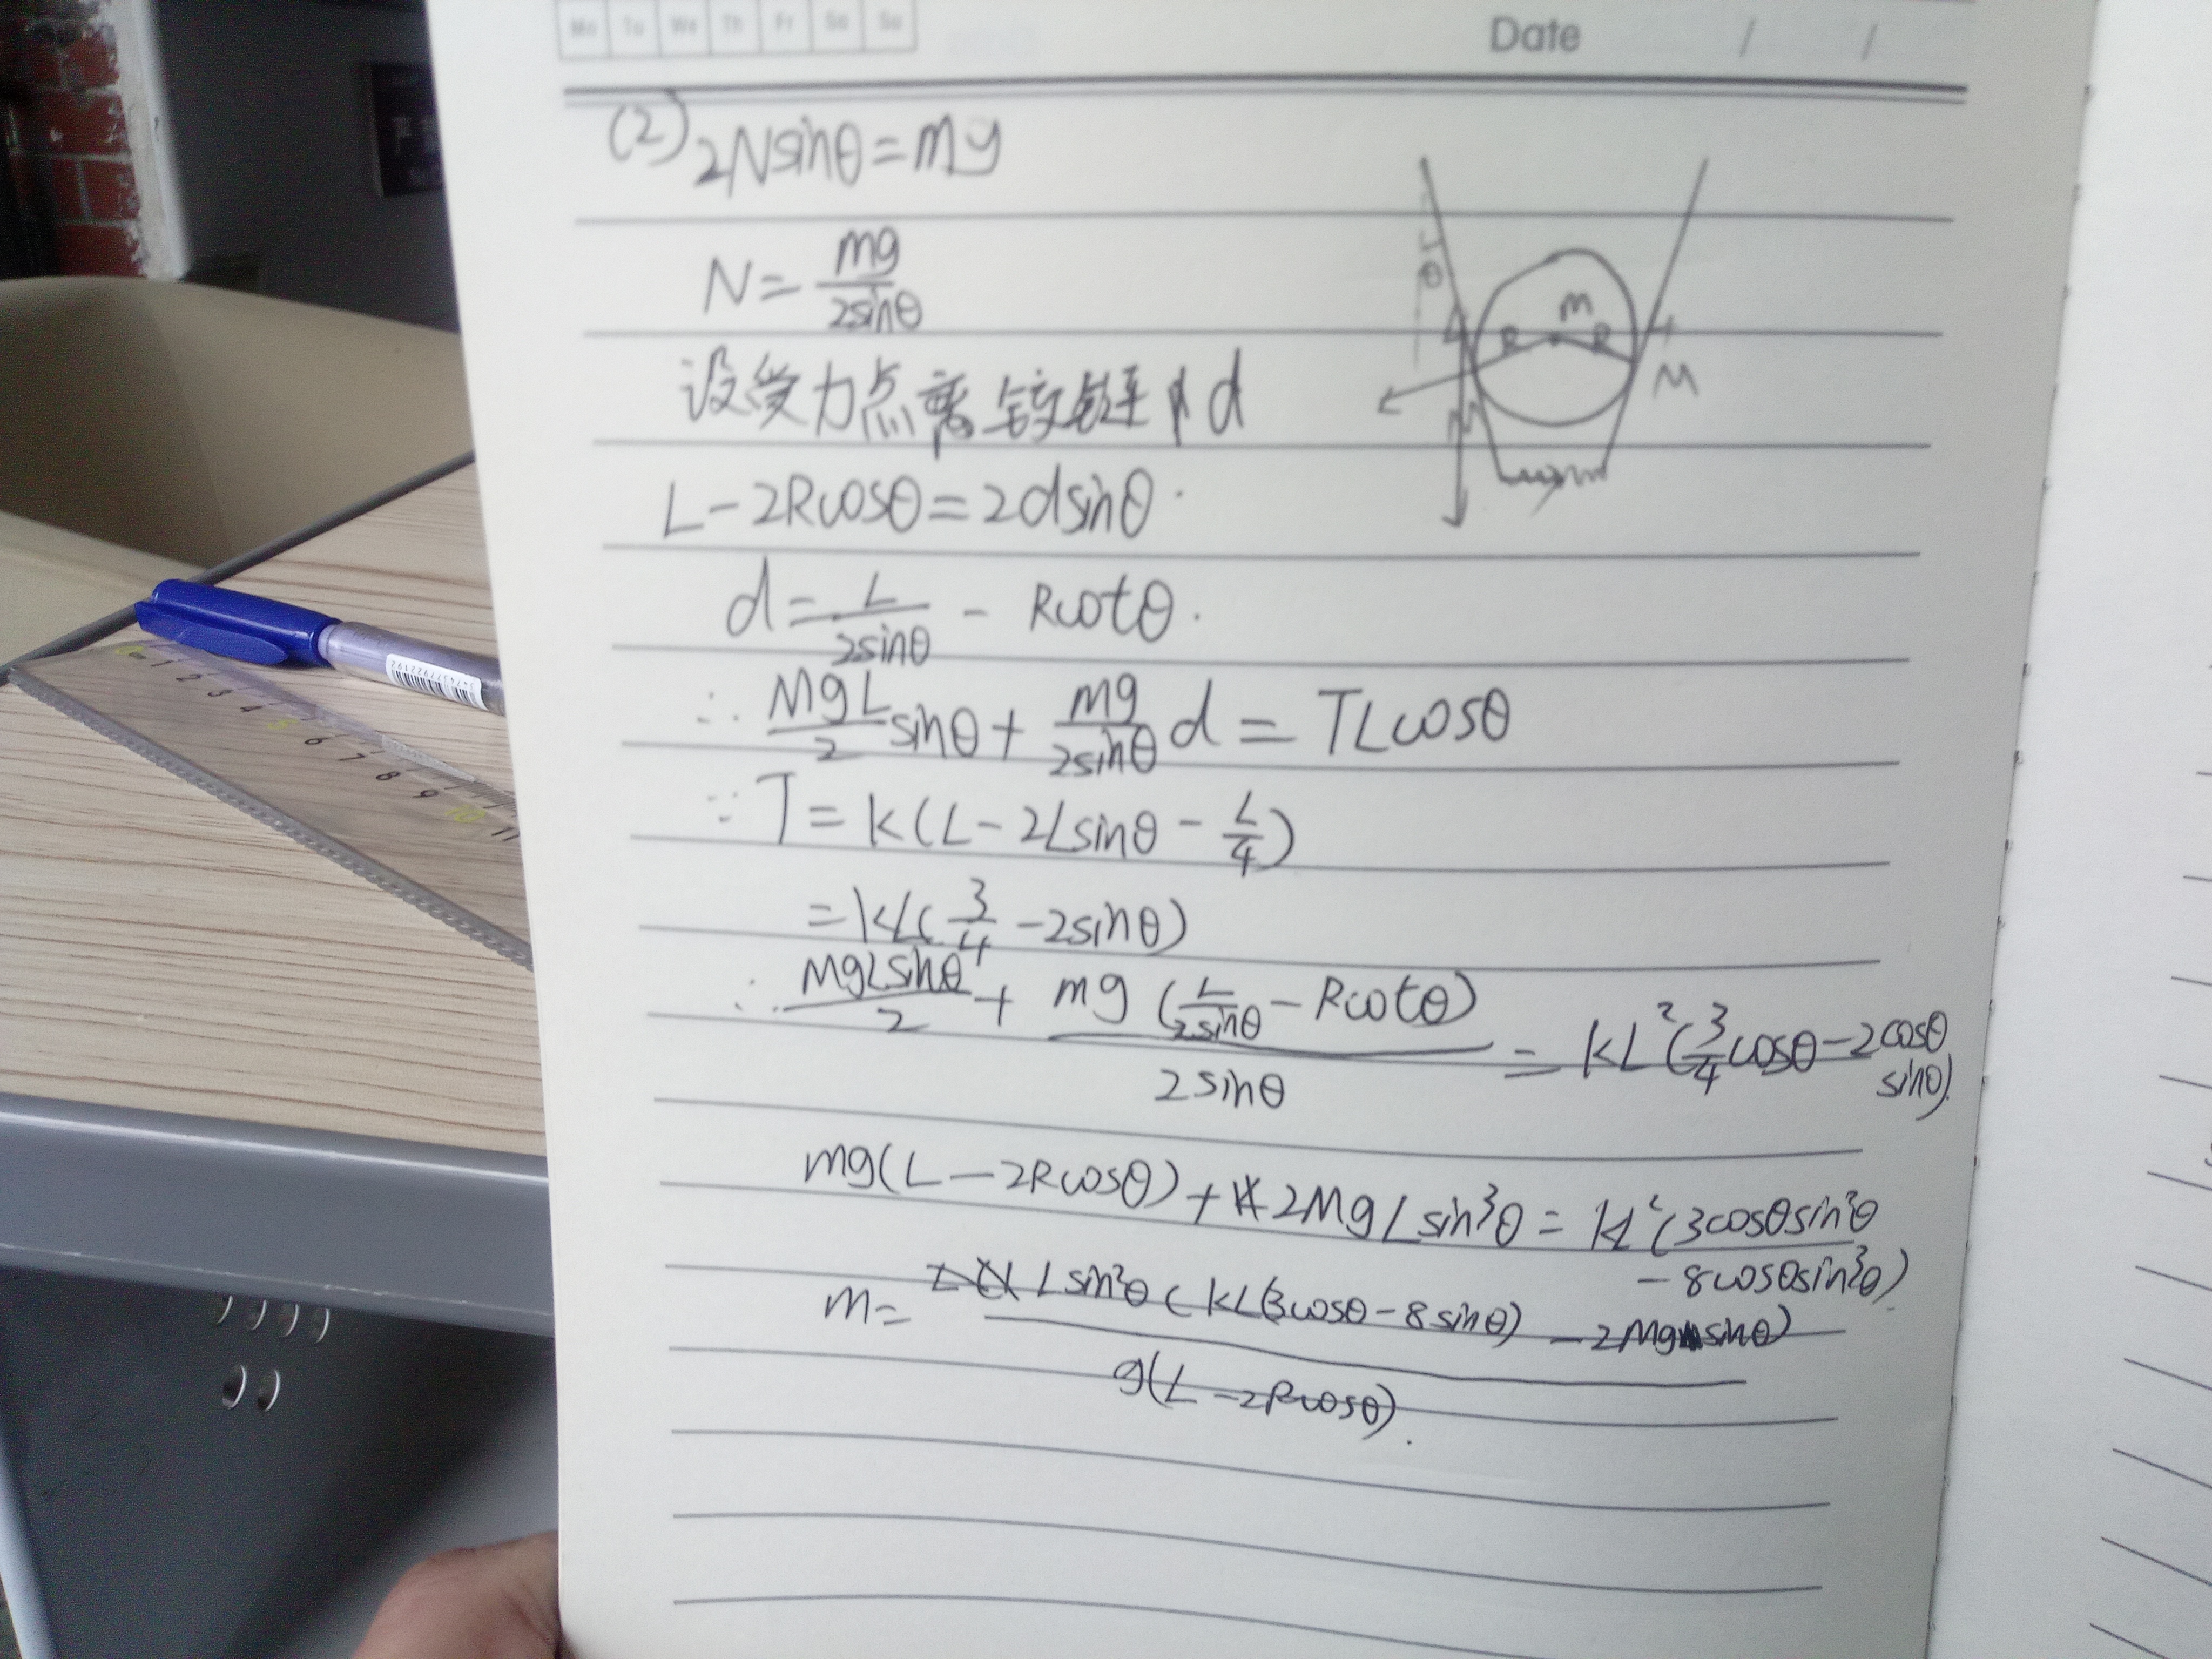 Mo Tu We Th Fr Sa Su
Date / /
(2) 2Nsinθ=mg
N=mg/2sinθ
θ
m
R R
M
设受力点离铰链 d
L-2Rcosθ=2dsinθ.
d=L/2sinθ - Rcotθ.
∴ MgL/2 sinθ + mg/2sinθ d = TLcosθ
∵ T=k(L-2Lsinθ-L/4)
=kL(3/4-2sinθ)
∴ MgLsinθ/2 + mg(L/2sinθ-Rcotθ)/2sinθ = kL²(3/4cosθ-2cosθ
sinθ).
mg(L-2Rcosθ)+2MgLsin³θ=kL²(3cosθsin²θ
-8cosθsin³θ).
m= Lsin²θ(kL(3cosθ-8sinθ)-2Mgsinθ)/g(L-2Rcosθ).
0 1 2 3 4 5 6 7 8 9 10 11